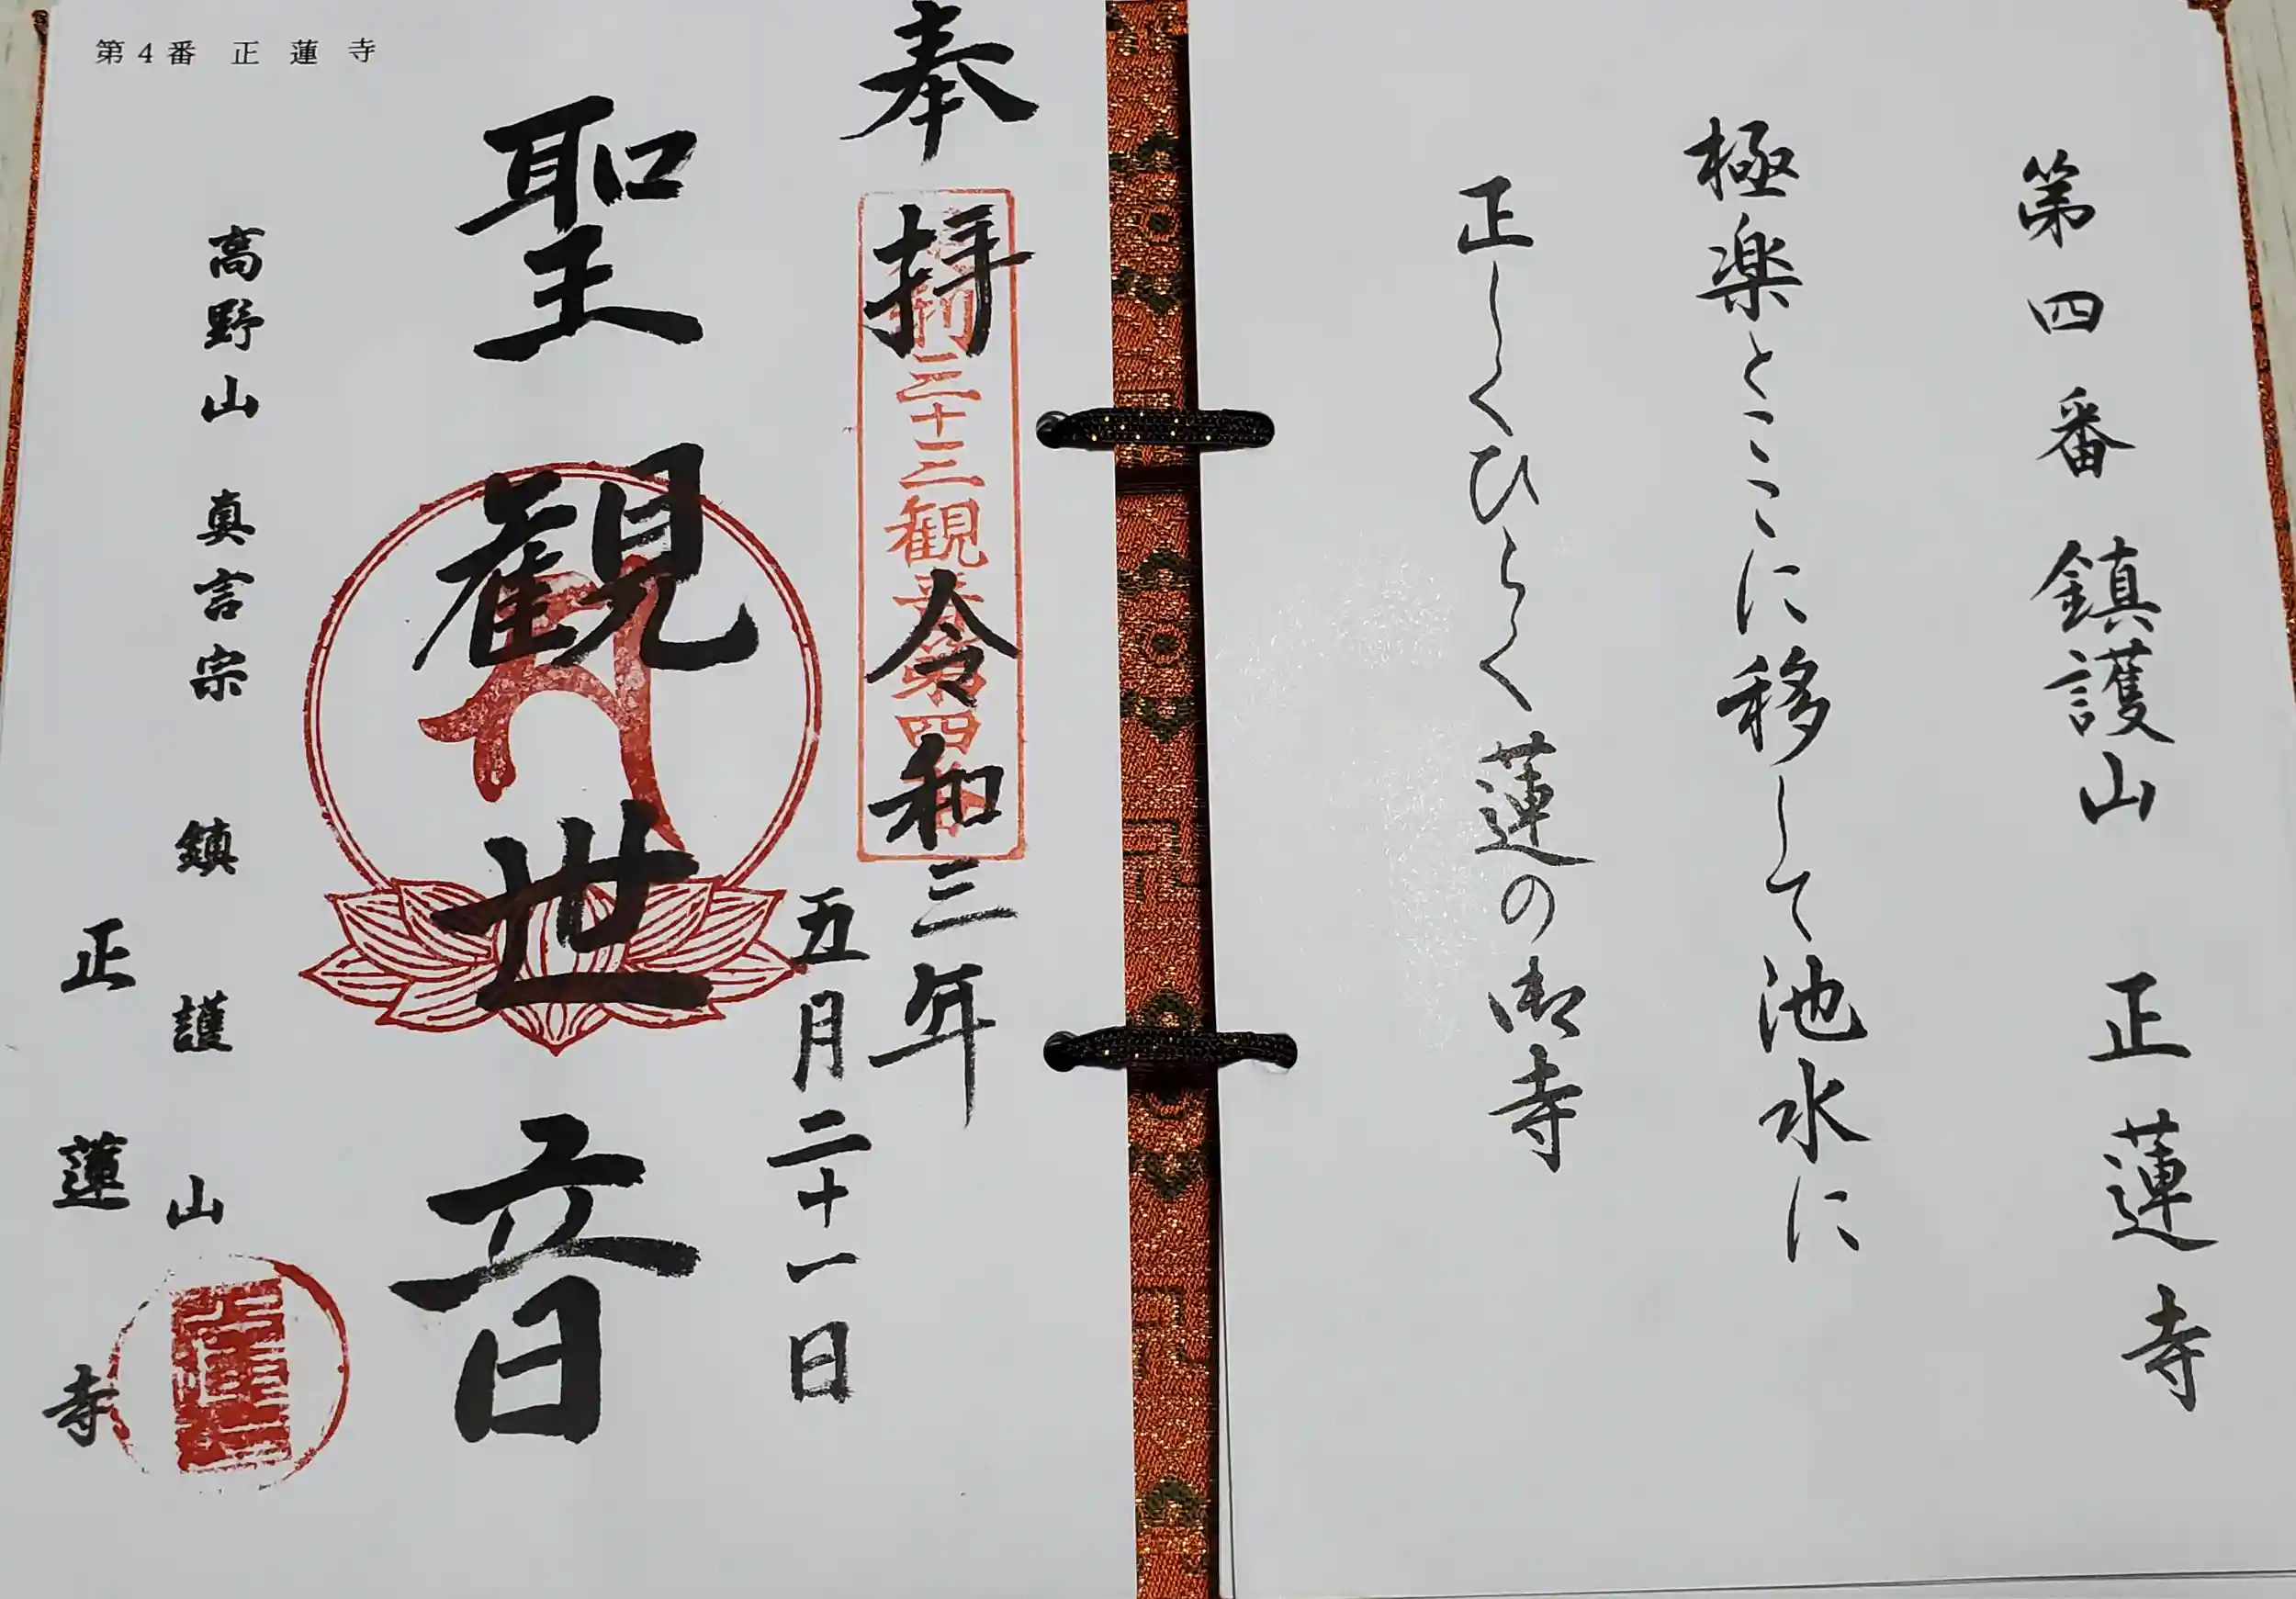 第四番 鎮護山 正蓮寺
極楽とここに移して池水に
正しくひらく蓮の御寺
第4番 正蓮寺
奉拝 令和三年
五月二十一日
聖観世音
高野山真言宗 鎮護山
正蓮寺
三十三観音第四番